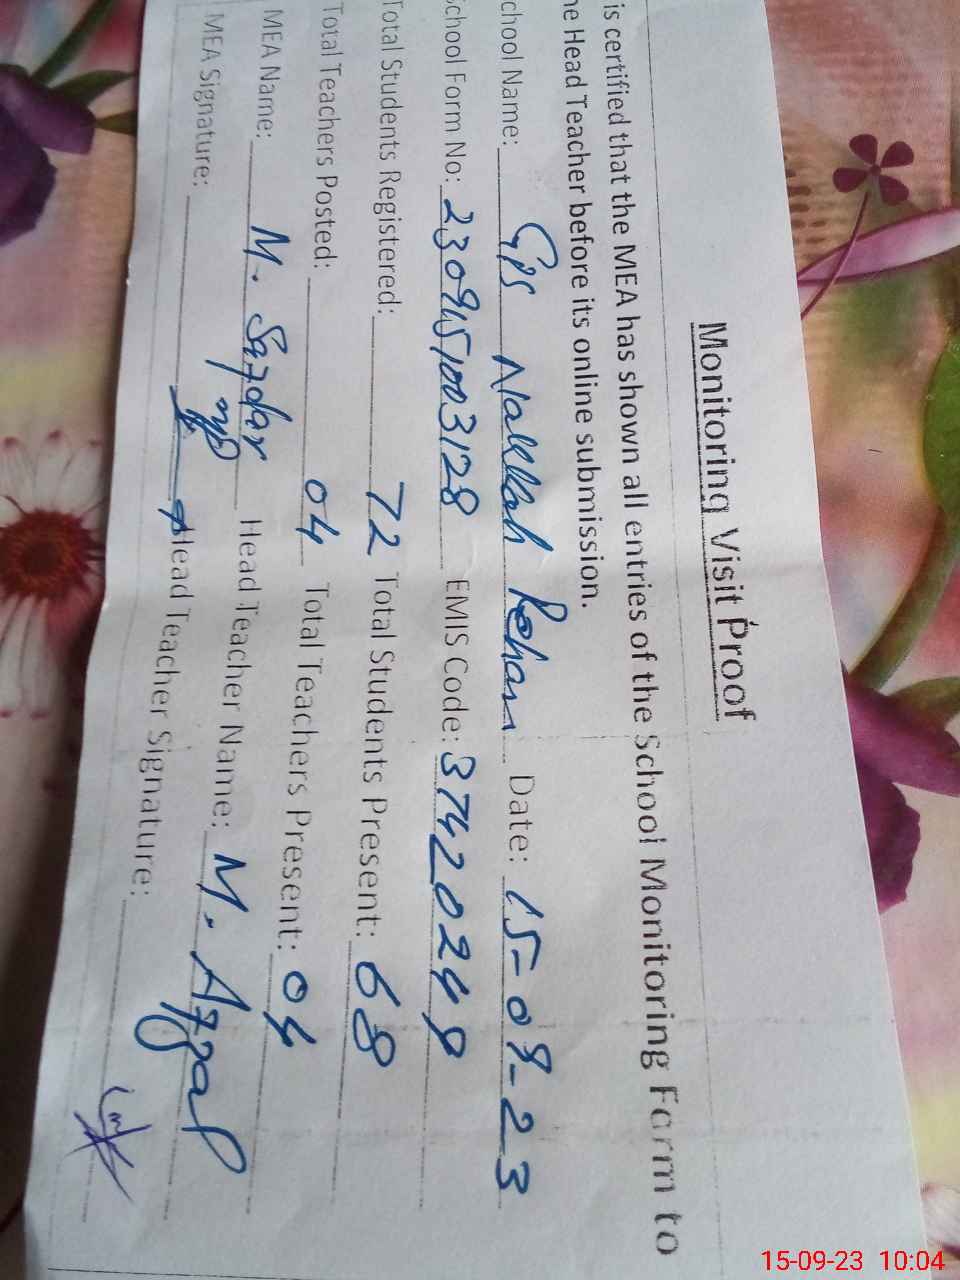 Monitoring Visit Proof
is certified that the MEA has shown all entries of the School Monitoring Form to
he Head Teacher before its online submission.
chool Name: GPS Date: 15-09-23
School Form No: 2309151003128 EMIS Code: 37420248
Total Students Registered: 72 Total Students Present: 68
Total Teachers Posted: 04 Total Teachers Present: 04
MEA Name: M. Safdar Head Teacher Name: M. Afzal
MEA Signature: Head Teacher Signature:
15-09-23 10:04